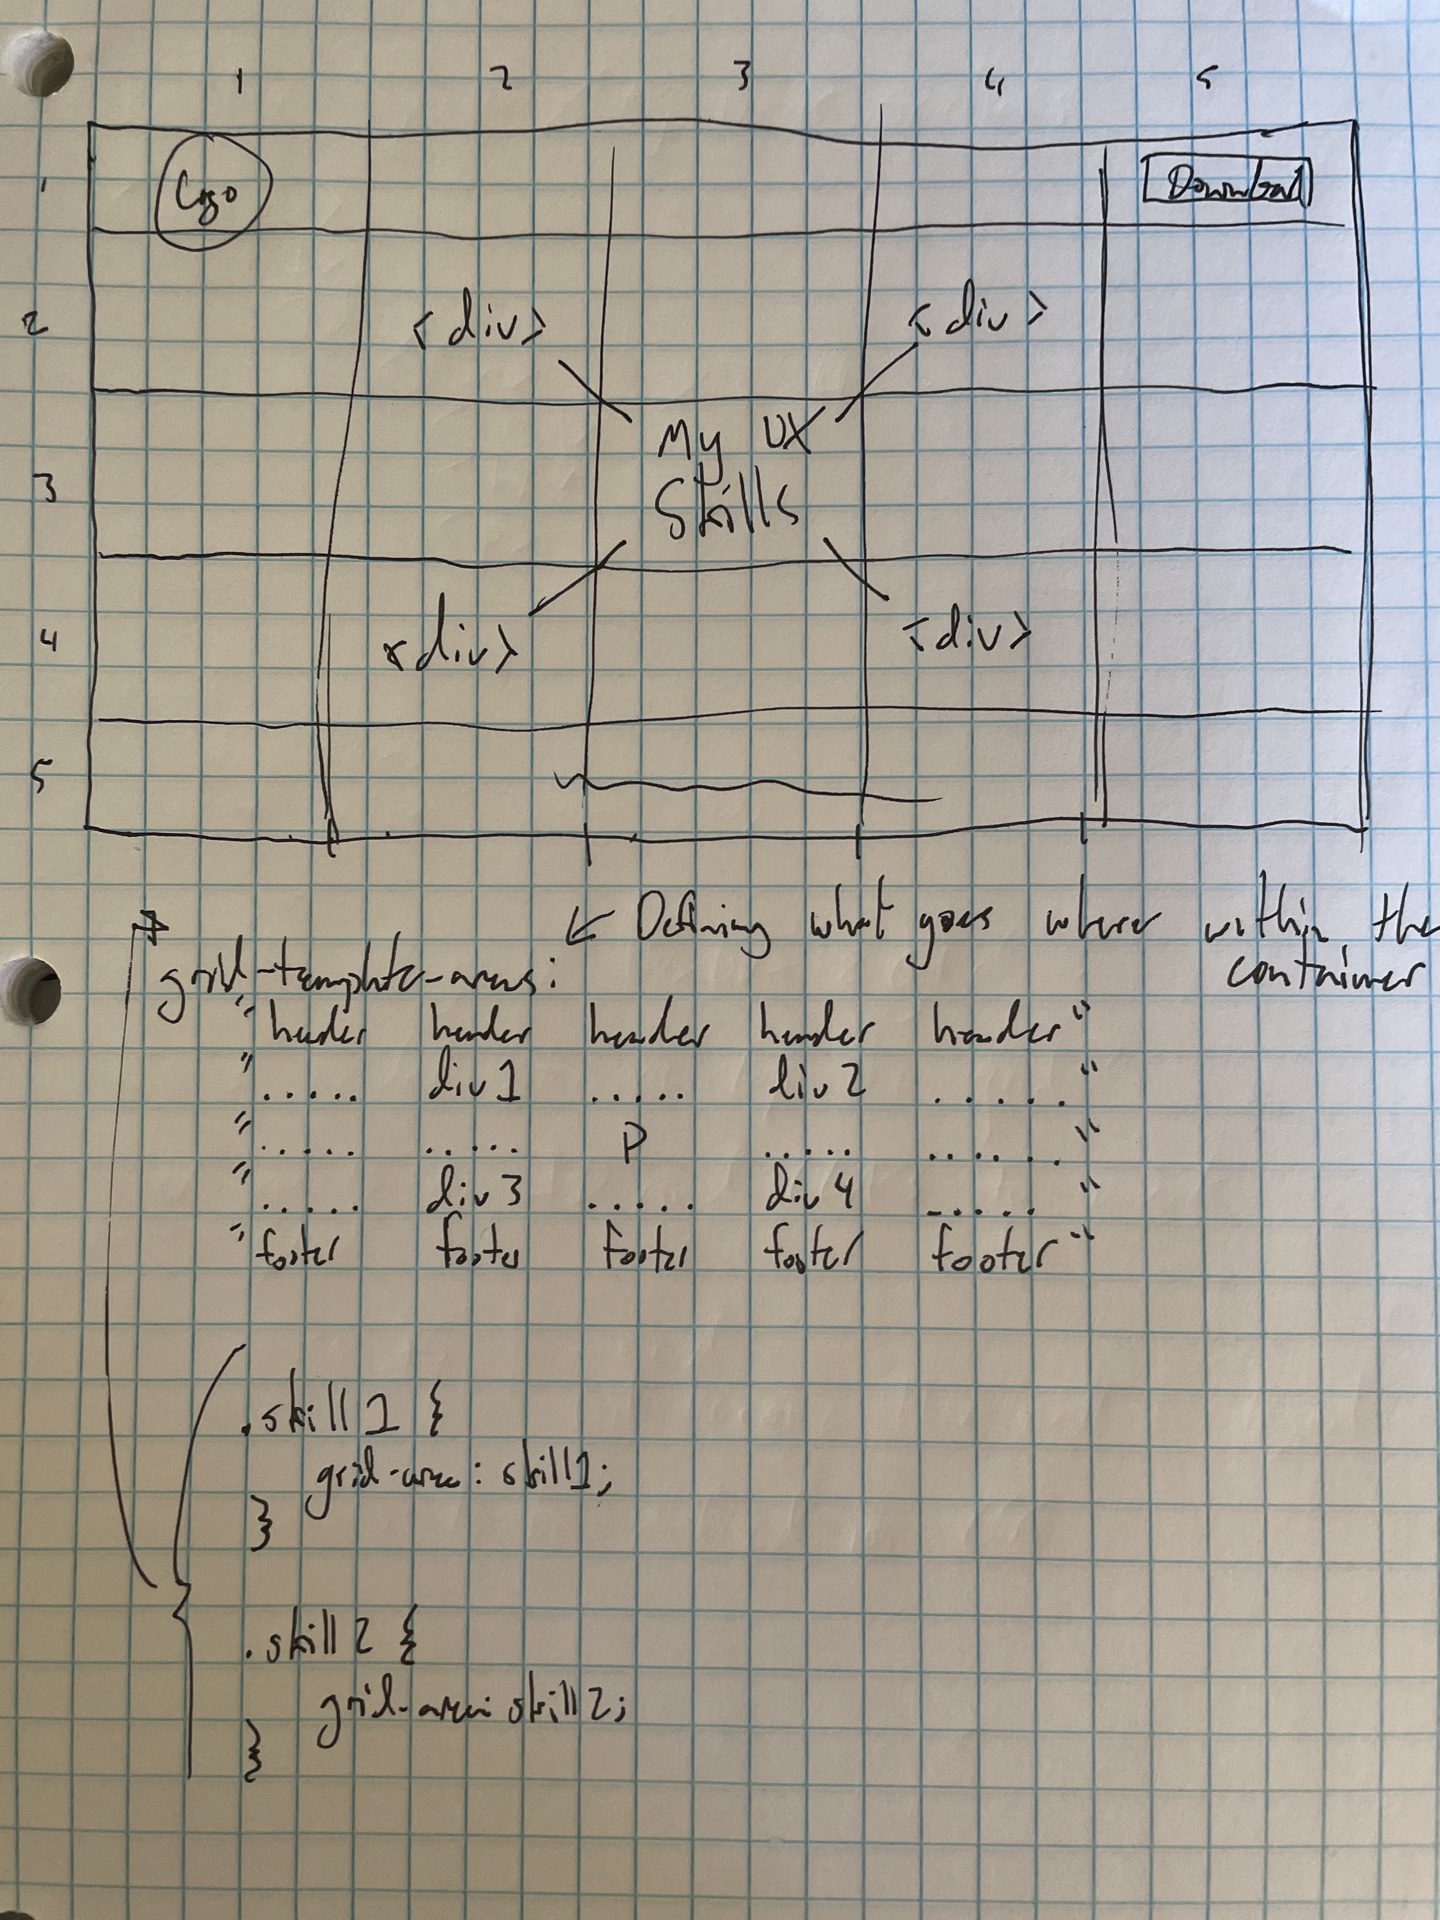 1 2 3 4 5
1 Logo Download
2 <div> <div>
My UX
3 Skills
4 <div> <div>
5
← Defining what goes where within the
container
grid-template-areas:
"header header header header header"
"..... div1 ..... div2 ......"
"..... ..... P ..... ......"
"..... div3 ..... div4 ....."
"footer footer footer footer footer"
.skill1 {
grid-area: skill1;
}
.skill2 {
grid-area: skill2;
}